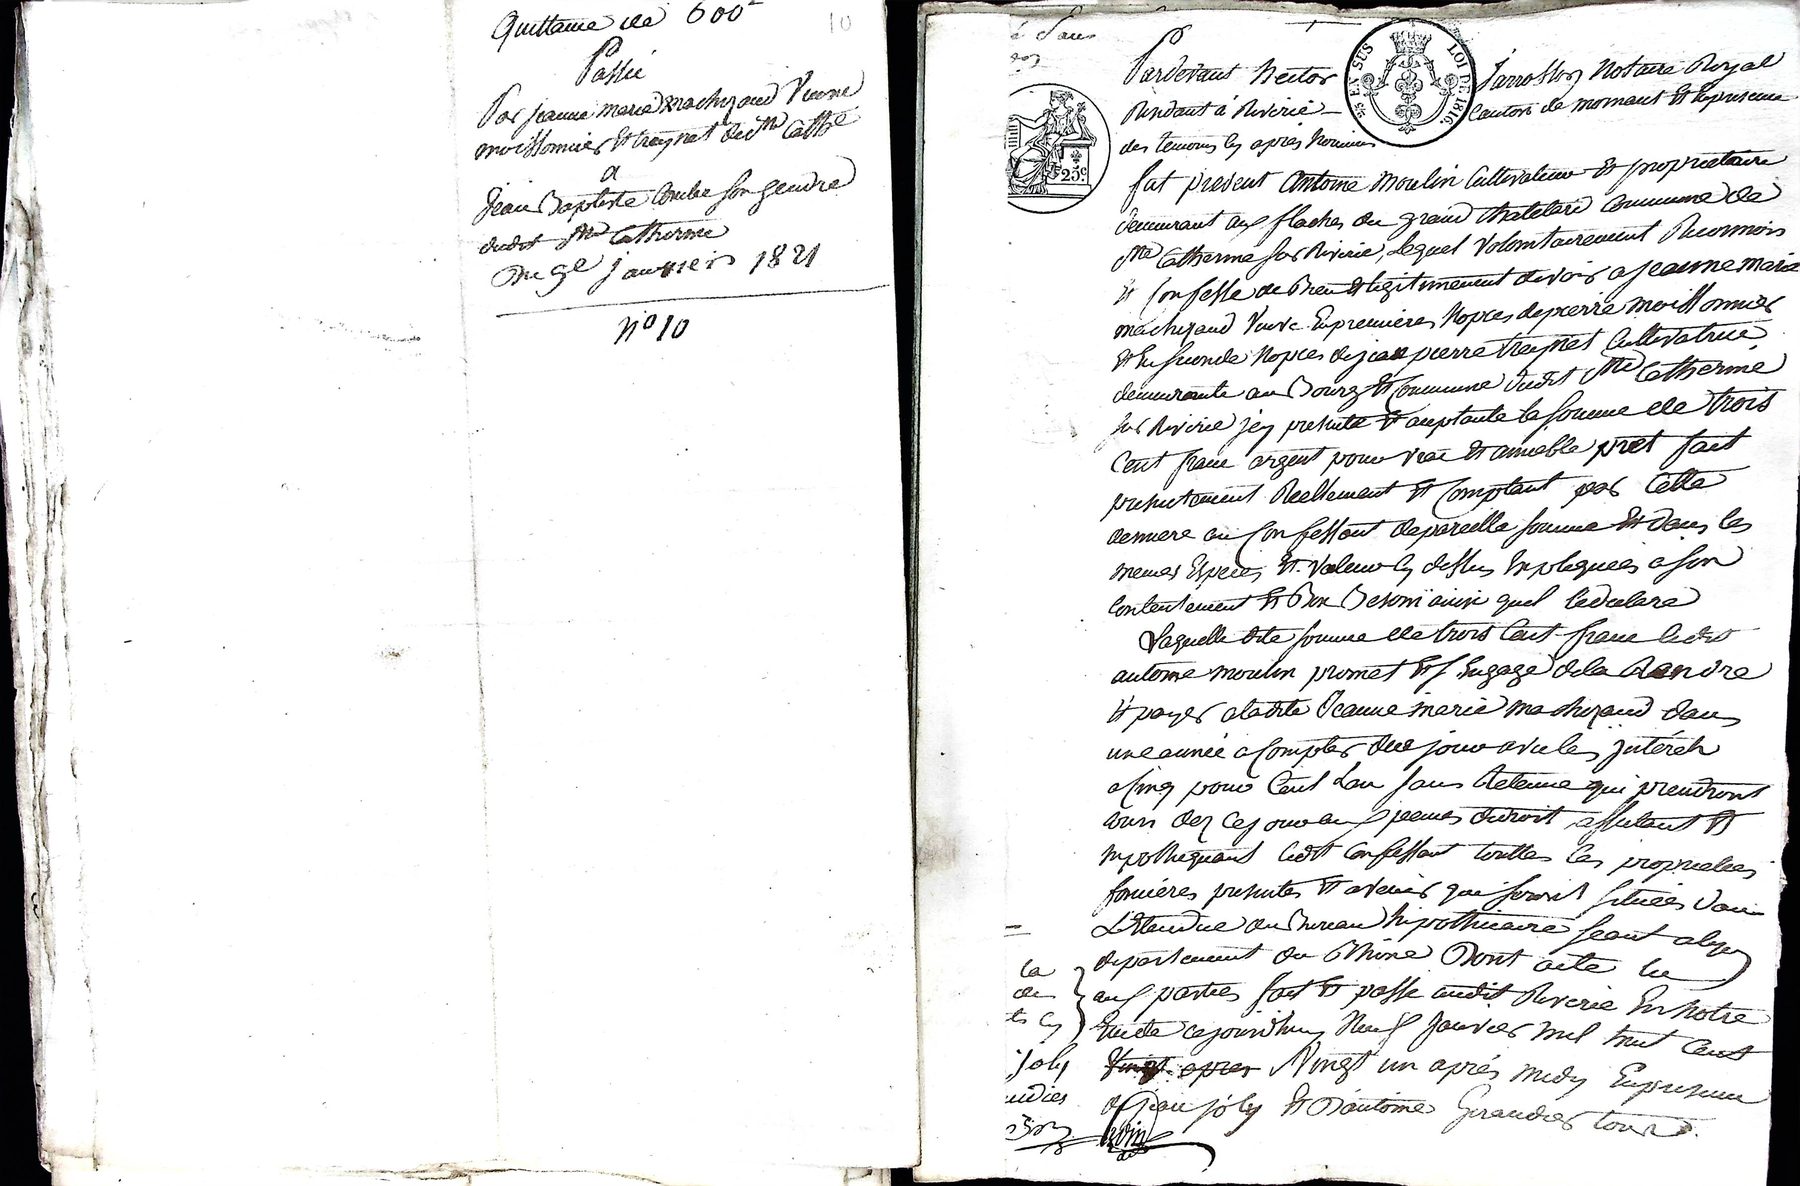 Quittance de 600#
10
Passée
Par jeanne marie machizaud Veuve
moissonnier Et treynet de Ste Cathe
a
jean Baptiste Combe son gendre
dudit Ste Catherine
Du 9e janvier 1821
No 10
Pardevant hector Jarrosson Notaire Royal
Résidant à Riverie Canton de mornant Et En presence
des temoins Cy apres Nommés
EN SUS LOI DE 1816.
25c
fut présent Antoine Moulin Cultivateur Et proprietaire
demeurant aux flaches du grand Chatelard Commune de
Ste Catherine sur Riverie, Lequel Volontairement Reconnois
Et Confesse de Bien Et legitimement devoir a jeanne marie
machizaud Veuve En premieres Nopces de pierre moissonnier
Et En seconde Nopces de jean pierre treynet Cultivatrice
demeurante au Bourg Et Commune dudit Ste Catherine
sur Riverie jcy presente Et acceptante la somme de trois
Cent franc argent pour vrai Et amiable prêt fait
presentement Reellement Et Comptant par Cette
derniere au Confessant de pareille somme Et dans les
memes Especes Et Valeur Cy dessus Expliquées a son
Contentement Et Bon Besoin ainsi quil le déclare
Laquelle dite somme de trois Cent franc ledit
antoine moulin promet Et s'Engage de la Rendre
Et payer a ladite Jeanne marie machizaud dans
une année a Compter de ce jour avec les jntérêts
a Cinq pour Cent L'an sans Retenue qui prendront
cours dez ce jour aux peines de droit affectant Et
hypothequant ledit Confessant touttes les propriétées
foncières presentes Et avenir qui seront situées dans
L'Etendue du Bureau hipothécaire séant a lyon
departement du Rhône Dont acte lu
aux parties fait Et passé audit Riverie En Notre
Etude cejourdhuy Neuf Janvier mil huit Cent
Vingt un après midy En presence
de jean joly Et d'antoine Giraudier tous
la
de
ts Cy
joly